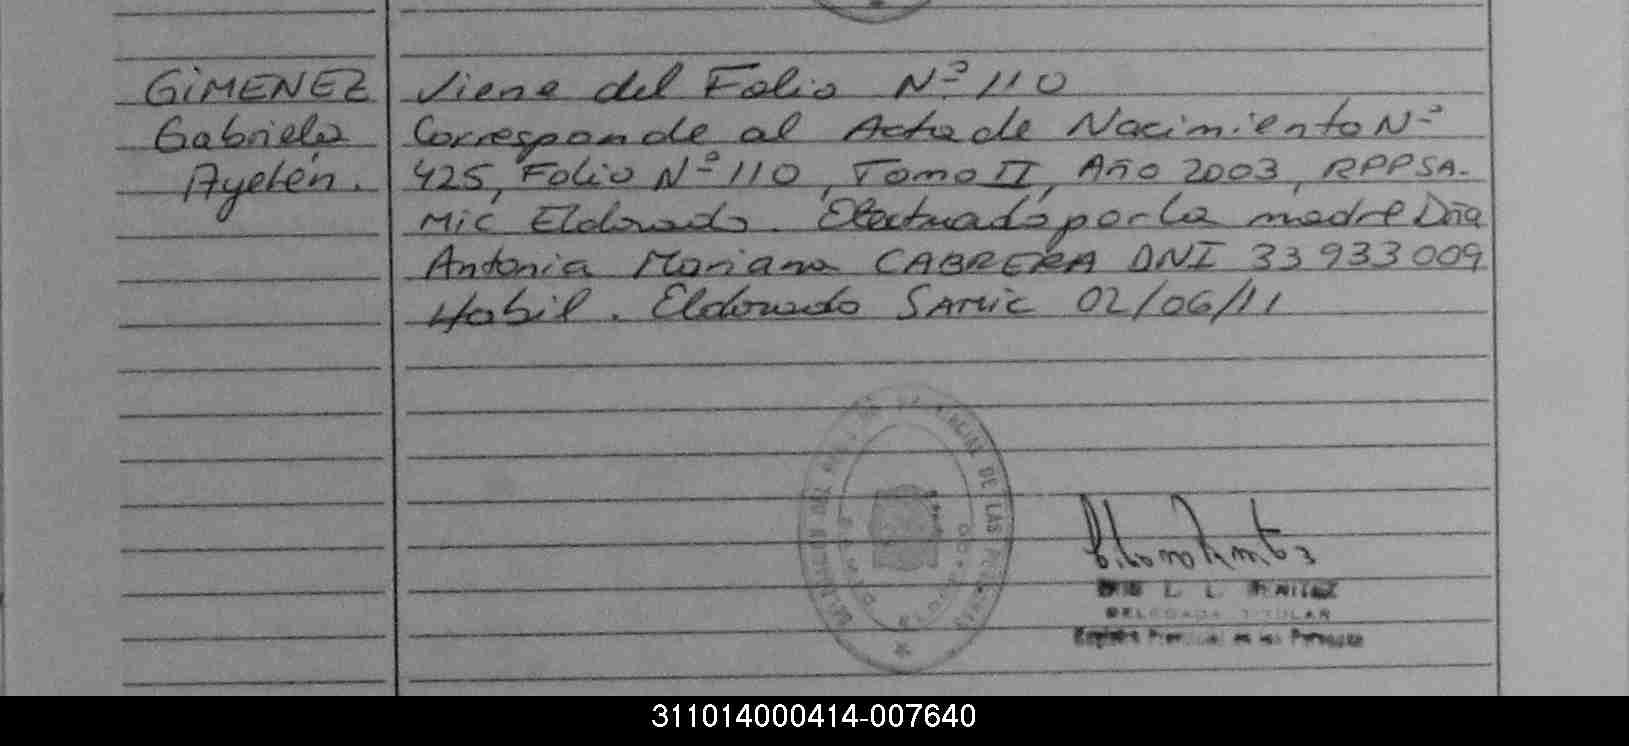 GIMENEZ
Gabriela
Ayelén.
Viene del Folio Nº 110
Corresponde al Acta de Nacimiento Nº
425, Folio Nº 110, Tomo II, Año 2003, RPPSA-
MIC Eldorado. Efectuado por la madre Dña
Antonia Mariana CABRERA DNI 33933009
Habil. Eldorado SAMIC 02/06/11
DE LAS
DELEGADA TITULAR
Registro Provincial de las Personas
311014000414-007640